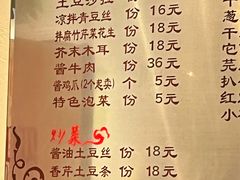 土豆沙拉
凉拌青豆丝 份 16元
拌腐竹芹菜花生 份 18元
芥末木耳 份 18元
酱牛肉 份 36元
酱鸡爪(2个起卖) 个 5元
特色泡菜 份 5元
炒菜
酱油土豆丝 份 18元
香芹土豆条 份 18元